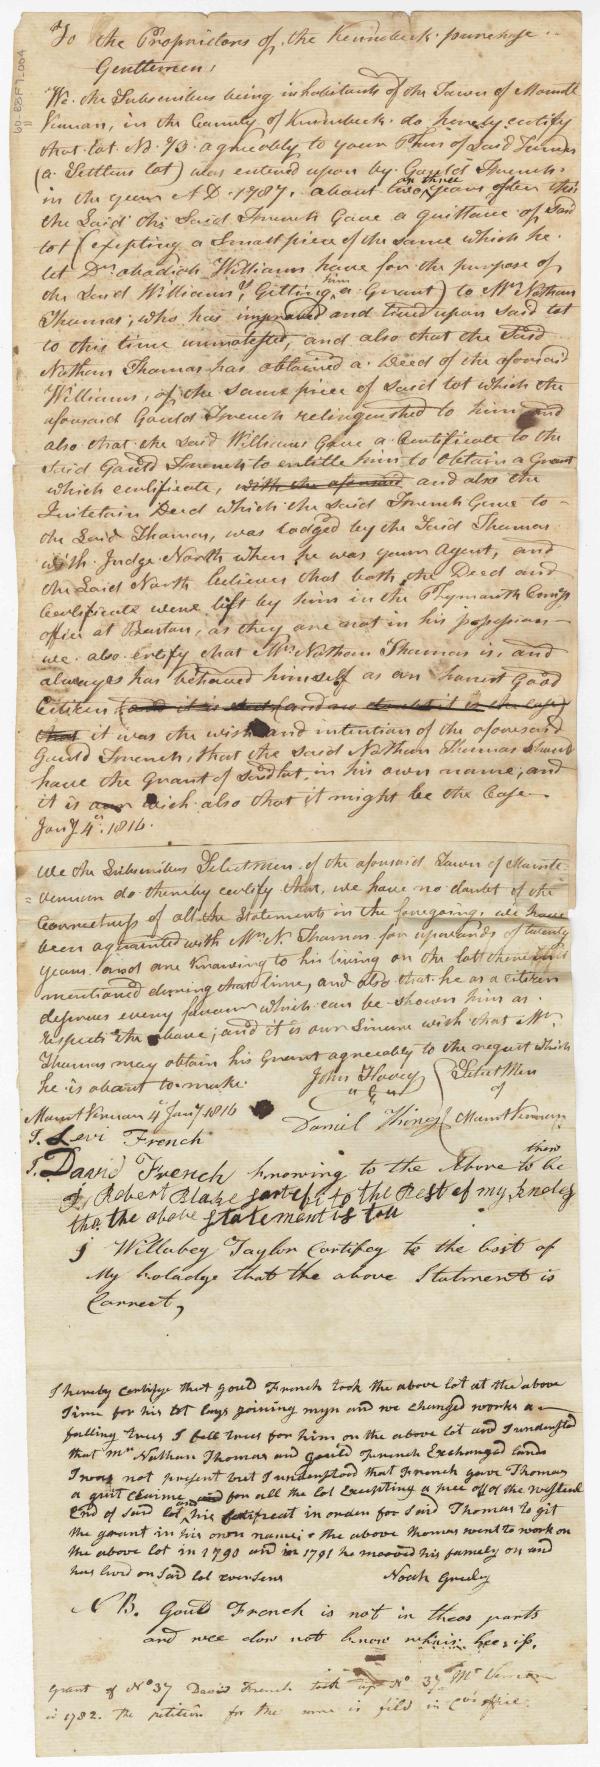 To the Proprietors of the Kennebeck purchase
Gentlemen,
We the Subscribers being inhabitants of the Town of Mount
Vernon, in the County of Kennebeck do hereby certify
that lot No. 73 agreeably to your Plan of Said Town
(a Settlers lot) was entered upon by Gould French
in the year A D. 1787. about two or three years after this
the Said the Said French Gave a quittance of Said
lot (excepting a Small piece of the same which he
let Dn. obadiah Williams have for the purpose of
the Said Williams's Getting him a Grant) to Mr. Nathan
Thomas, who has improved and lived upon Said lot
to this time unmolested, and also that the Said
Nathan Thomas has obtained a Deed of the aforesaid
Williams, of the same piece of Said lot which the
aforesaid Gould French relinquished to him and
also that the Said Williams Gave a Certificate to the
Said Gould French to entitle him to obtain a Grant
which certificate, with the aforesaid and also the
Quitclaim Deed which the Said French Gave to
the Said Thomas, was lodged by the Said Thomas
with Judge North when he was your agent, and
the Said North believes that both the Deed and
Certificate were left by him in the Plymouth Comps
office at Boston, as they are not in his possession
we also certify that Mr. Nathan Thomas is, and
always has behaved himself as an honest Good
Citizen
that it was the wish and intention of the aforesaid
Gould French, that the said Nathan Thomas Should
have the Grant of said lot, in his own name, and
it is our wish also that it might be the Case
Jany 4th. 1816.
We the Subscribers Selectmen of the aforesaid Town of Mount
Vernon do hereby certify that, we have no doubt of the
Correctness of all the Statements in the foregoing, we have
been aquainted with Mr. N. Thomas for upwards of twenty
years and are knowing to his living on the lott therein
mentioned during that time, and also that he as a citizen
deserves every favour which can be shown him as
respects the above, and it is our Sincere wish that Mr.
Thomas may obtain his Grant agreeably to the request which
he is about to make.
John Hovey Select Men
of
Daniel Thing Mount Vernon
Mount Vernon 4th Jany 1816
Levi French
David French knowing to the above to be
trew
I Robert Blake sartefi to the Best of my knoleg
tha the above statement is tru
I Willabey Taylor Certifey to the best of
My holadge that the above Statment is
Correct,
I hereby certifye that gould French took the above lot at the above
Time for his lot lays joining myn and we changed works a
falling trees I fell trees for him on the above lot and I understod
that mr Nathan Thomas and gould French Exchanged lands
I was not present but I understood that French gave Thomas
a quit claime and for all the lot Excepting a peec off of the westend
End of Said lot and his sertifecat in order for Said Thomas to git
the grant in his own name & the above thomas went to work on
the above lot in 1790 and in 1791 he mooved his famely on and
has lived on Said lot ever sens
Noah Greely
N B. Gould French is not in theas parts
and wee dow not know whair hee is.
grant of No 37 David French took up No 37 Mt Vernon
in 1782. the petition for the same is filed in Cos office.
60-EBF7.004